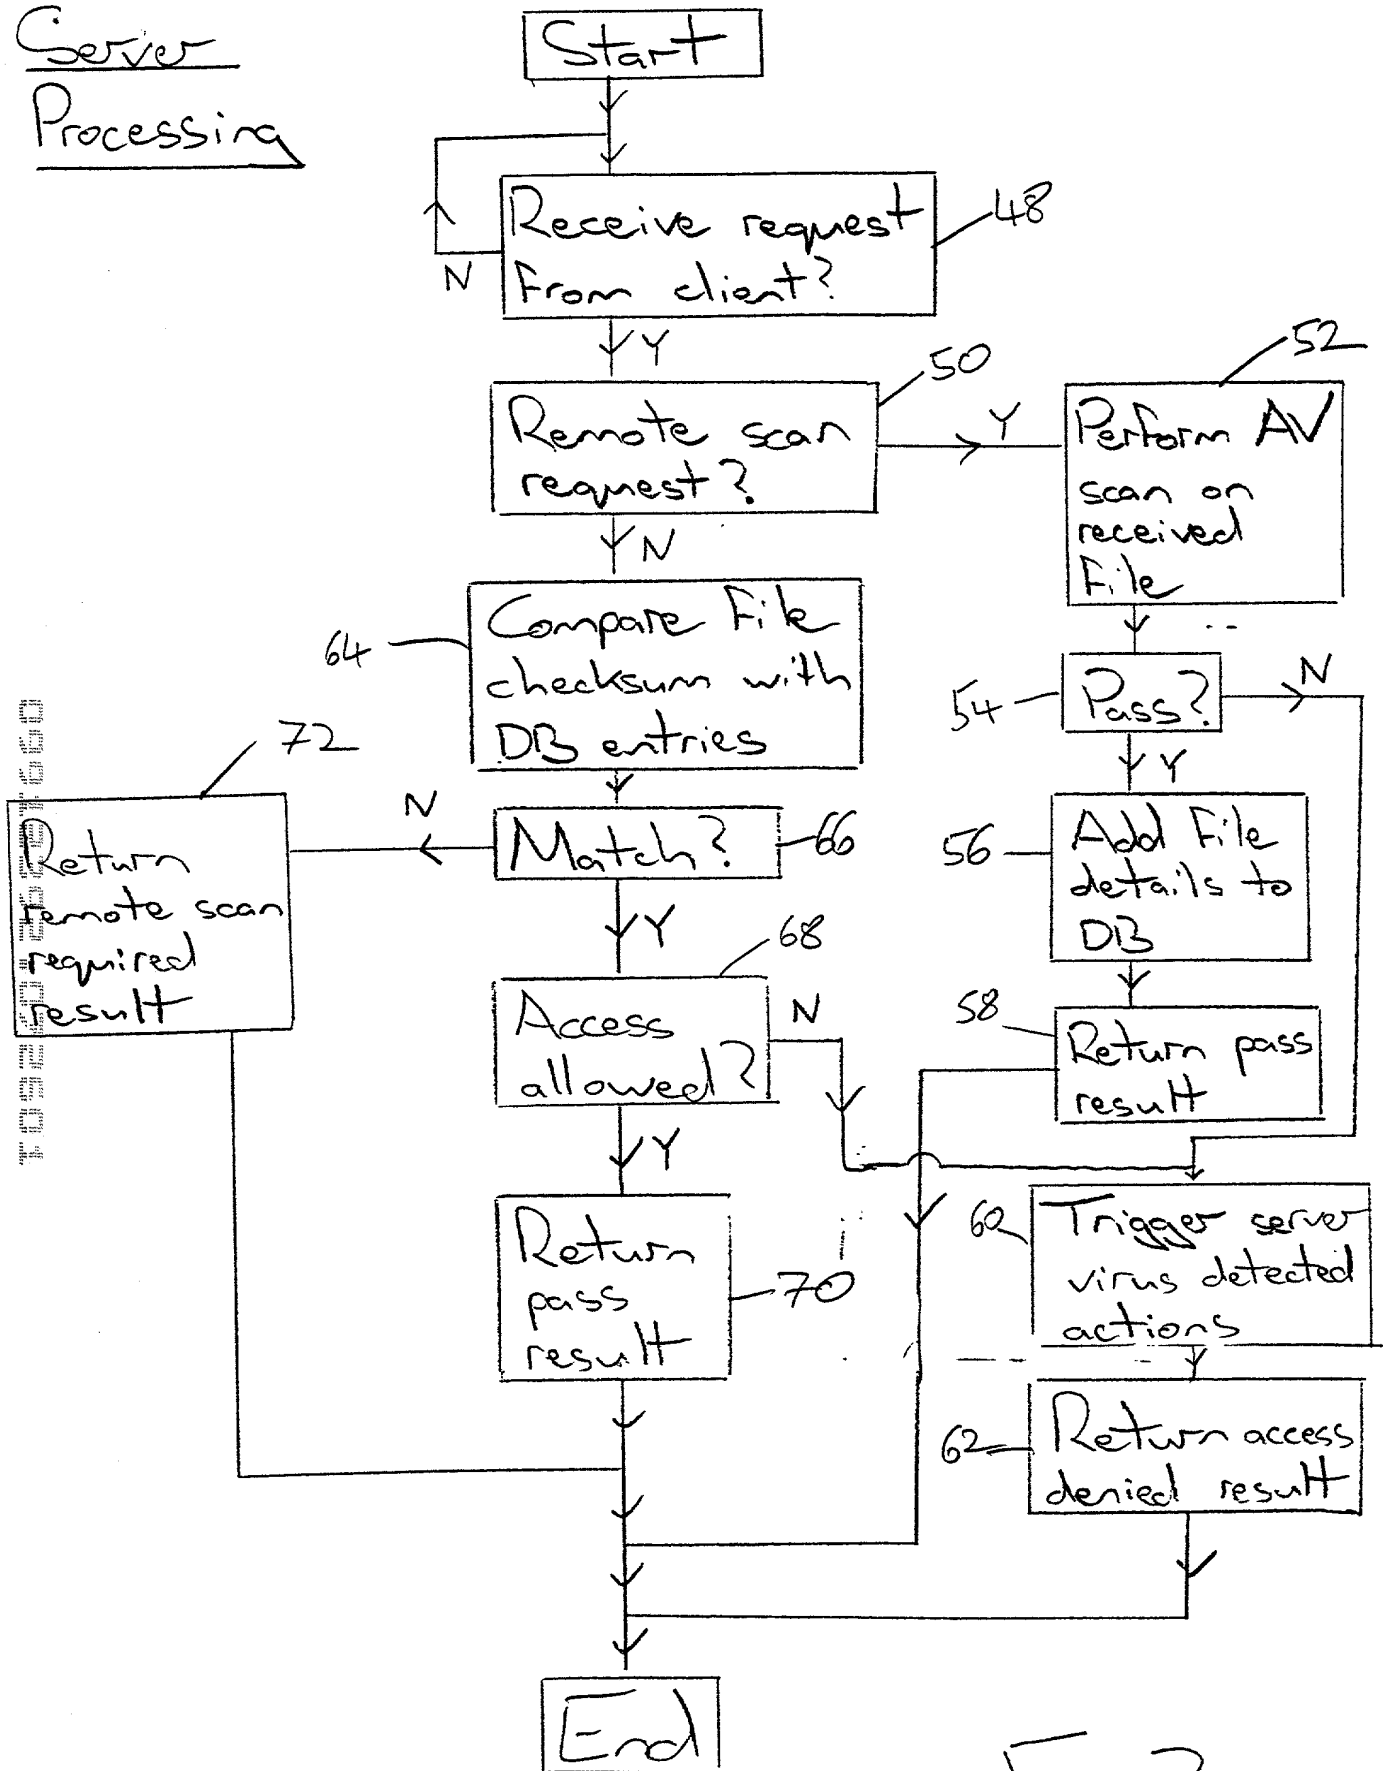 Server
Processing
Start
Receive request
from client?
48
N
Y
Remote scan
request?
50
Y
N
Perform AV
scan on
received
file
52
Compare file
checksum with
DB entries
64
Pass?
54
N
Y
Match?
66
N
Y
Return
remote scan
required
result
72
Add file
details to
DB
56
Access
allowed?
68
N
Y
Return pass
result
58
Return
pass
result
70
Trigger server
virus detected
actions
60
Return access
denied result
62
End